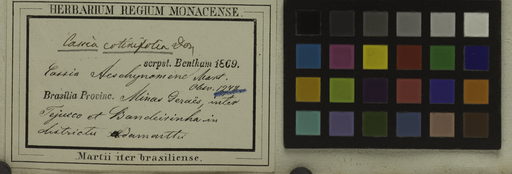 HERBARIUM REGIUM MONACENSE.
Cassia cotinifolia Don
scrpst. Bentham 1869.
Cassia Aeschynomene Mart.
Obs. 1948
Brasilia Provinc. Minas Geraës, inter
Tejuco et Bandeirinha in
districtu adamantin
Martii iter brasiliense.